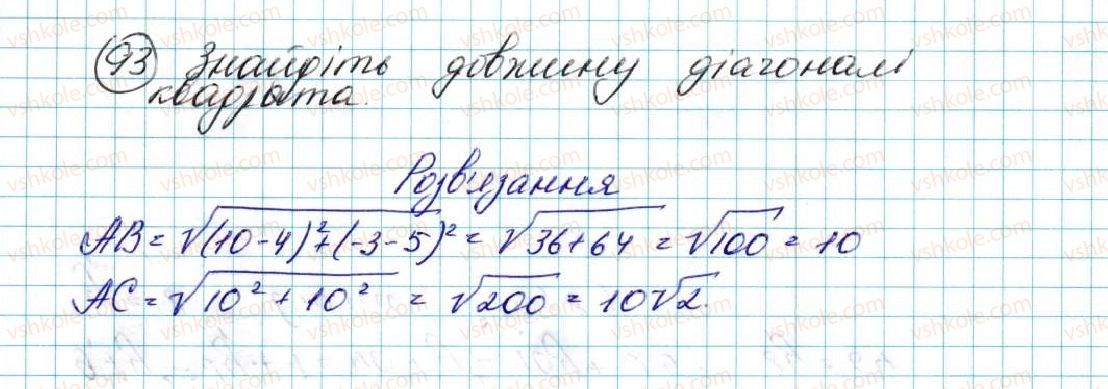 93 Знайдіть довжину діагоналі
квадрата.
Розв'язання
AB = √(10-4)²+(-3-5)² = √36+64 = √100 = 10
AC = √10² + 10² = √200 = 10√2.